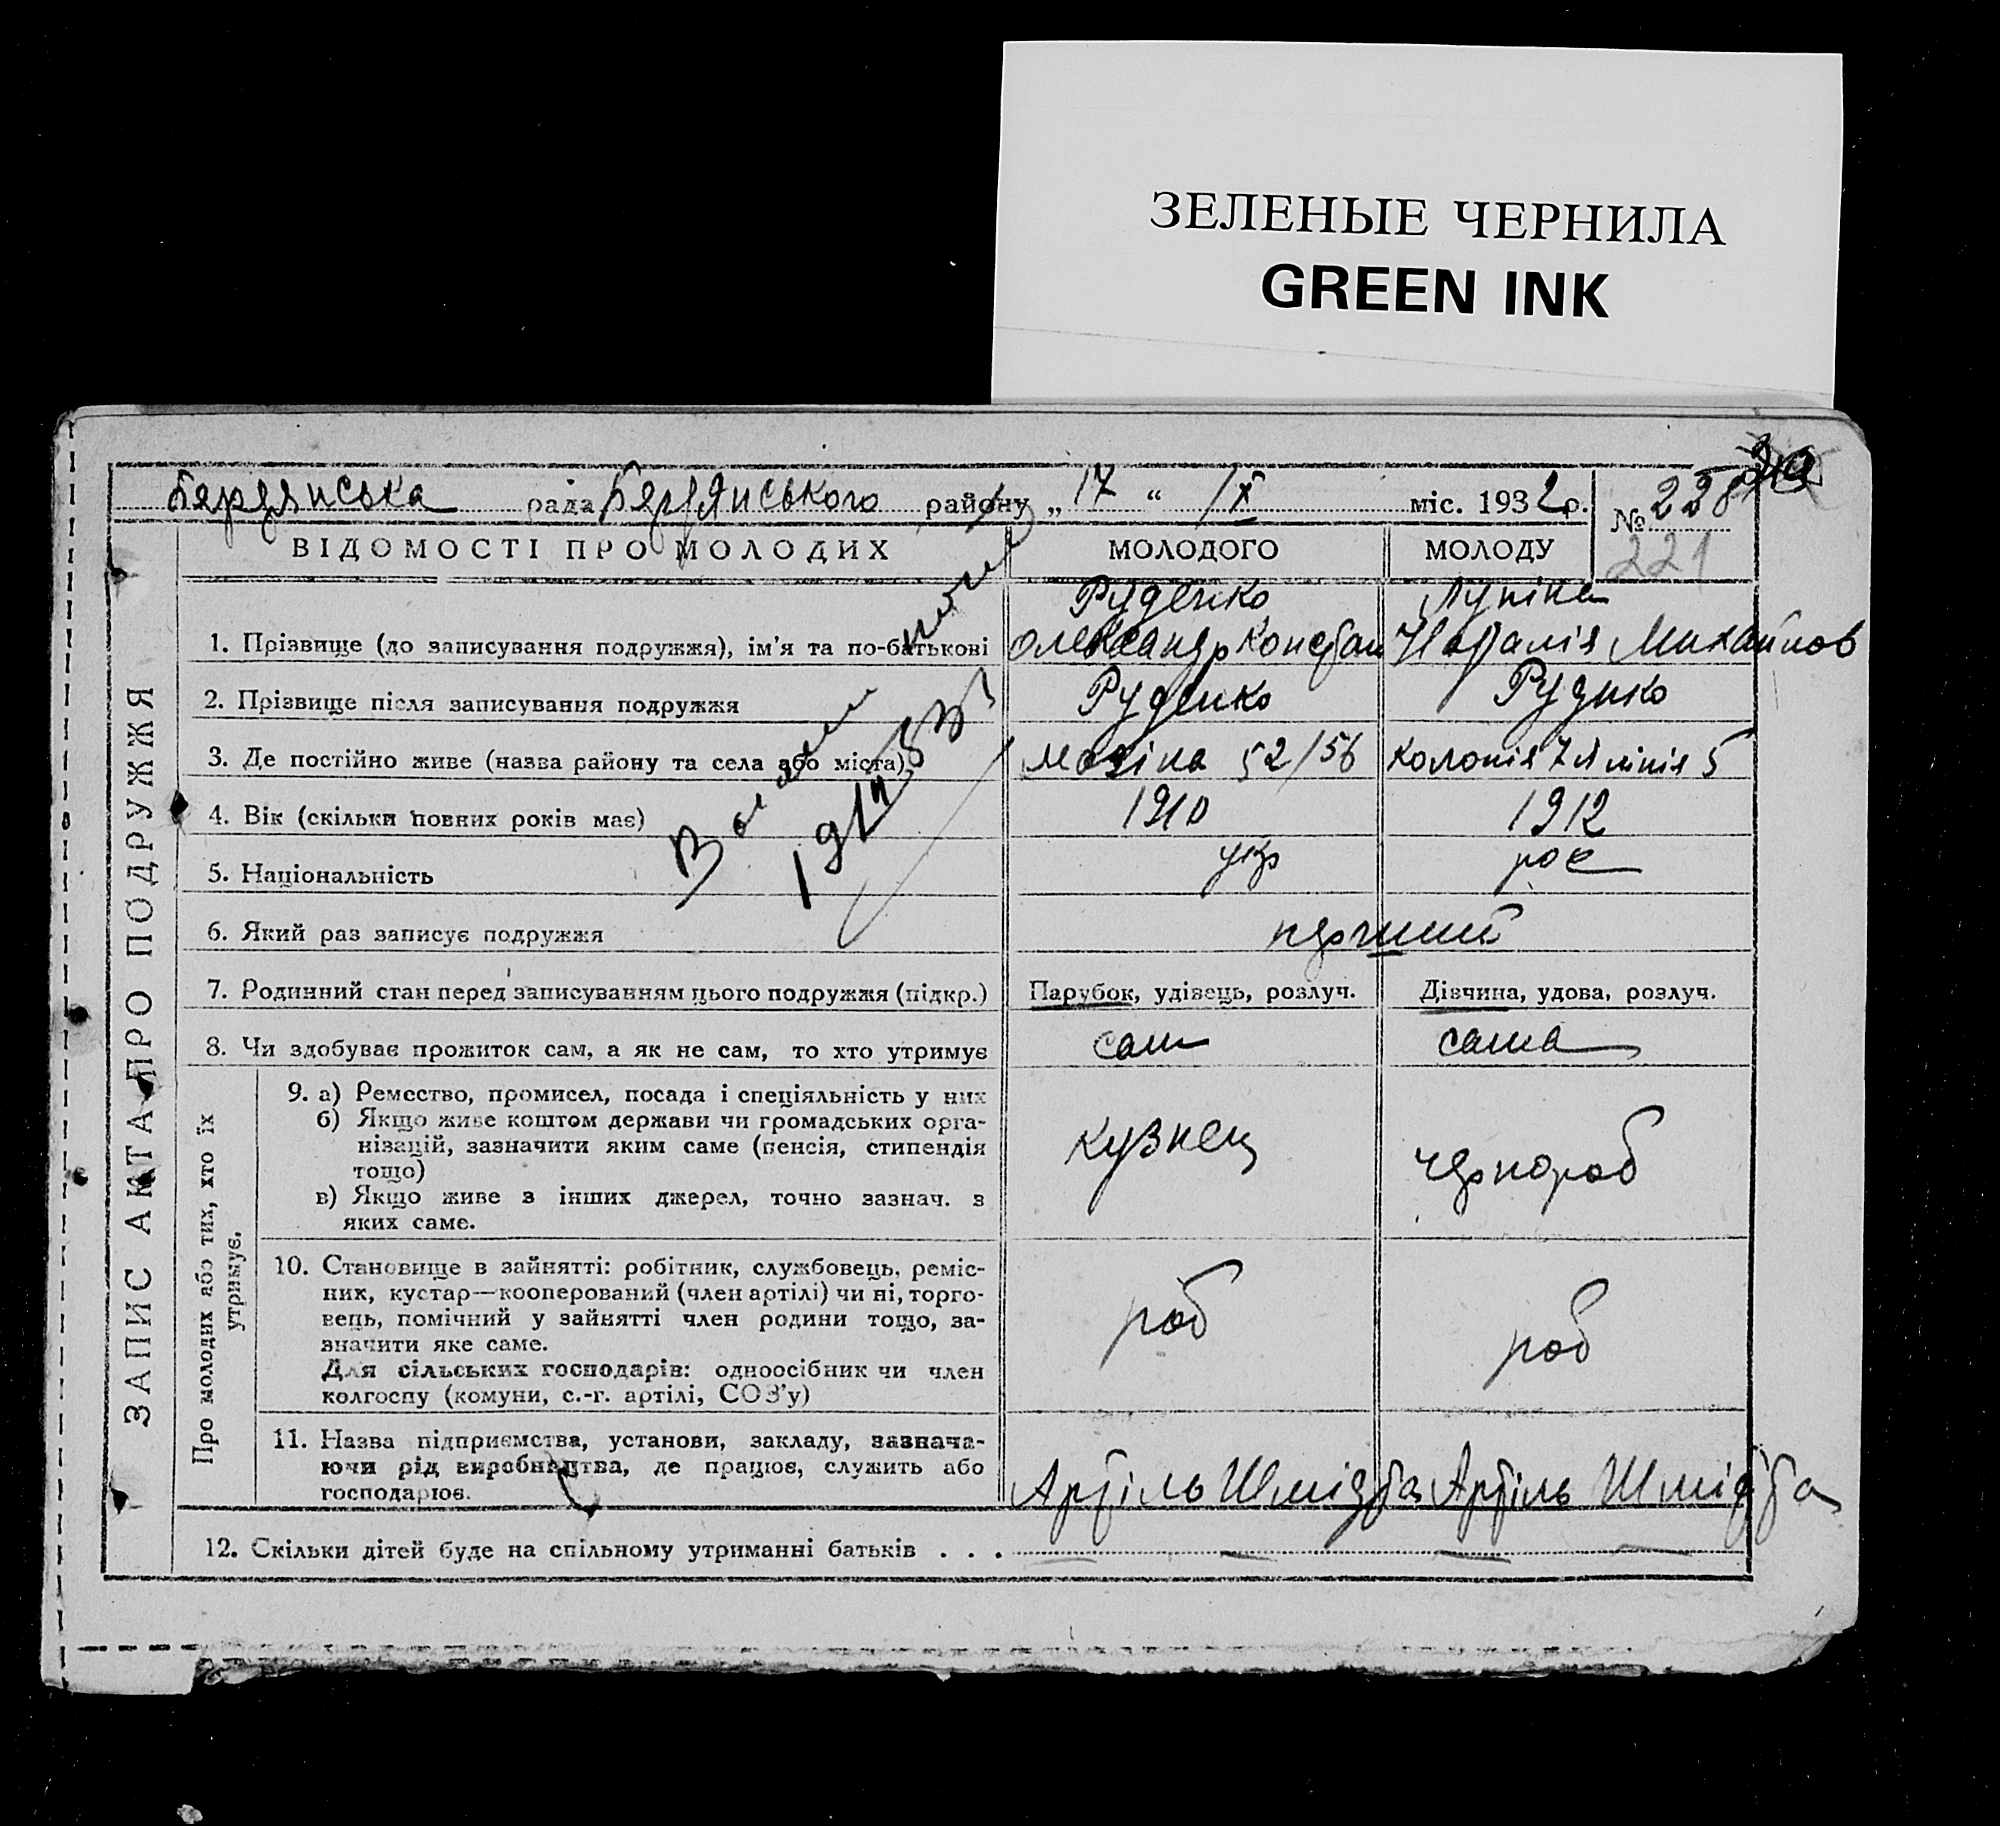 ЗЕЛЕНЫЕ ЧЕРНИЛА
GREEN INK
Бердянська рада Бердянського району „ 17 “ IX міс. 1932 р. № 228
221
ВІДОМОСТІ ПРО МОЛОДИХ МОЛОДОГО МОЛОДУ
ЗАПИС АКТА ПРО ПОДРУЖЖЯ
Руденко Лупіна
1. Прізвище (до записування подружжя), ім'я та по-батькові Олександр Констан Наталія Михайлов
2. Прізвище після записування подружжя Руденко Руденко
3. Де постійно живе (назва району та села або міста) 52/56 Колонія 7 я лінія 5
4. Вік (скільки повних років має) 1910 1912
5. Національність укр рос
6. Який раз записує подружжя перший
7. Родинний стан перед записуванням цього подружжя (підкр.) Парубок, удівець, розлуч. Дівчина, удова, розлуч.
8. Чи здобуває прожиток сам, а як не сам, то хто утримує сам сама
Про молодих або тих, хто їх
утримує.
9. а) Ремество, промисел, посада і спеціяльність у них
б) Якщо живе коштом держави чи громадських орга-
нізацій, зазначити яким саме (пенсія, стипендія
тощо)
в) Якщо живе з інших джерел, точно зазнач. з
яких саме.
кузнец чернороб
10. Становище в зайнятті: робітник, службовець, реміс-
ник, кустар—кооперований (член артілі) чи ні, торго-
вець, помічний у зайнятті член родини тощо, за-
значити яке саме.
Для сільських господарів: одноосібник чи член
колгоспу (комуни, с.-г. артілі, СОЗ'у)
роб роб
11. Назва підприємства, установи, закладу, зазнача-
ючи рід виробництва, де працює, служить або
господарює.
Артіль Шмідта Артіль Шмідта
12. Скільки дітей буде на спільному утриманні батьків . . .